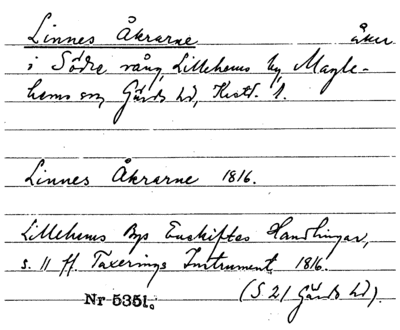 Linnes Åkrarne åker
i Södre vång, Lillehems by, Magle-
hems sn, Gärds hd, Krist. l.
Linnes Åkrarne 1816.
Lillehems Bys Enskiftes Handlingar,
s. 11 ff. Taxerings Instrument 1816.
Nr 5351. (S 21 Gärds hd).